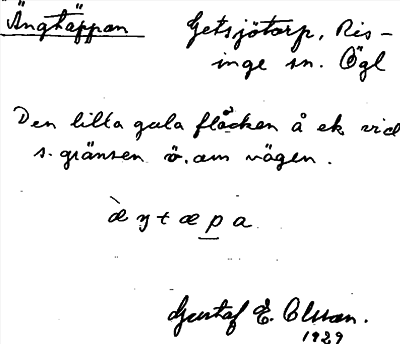 Ängtäppan
Getsjötorp, Ris-
inge sn. Ögl
Den lilla gula fläcken å ek. vid
s. gränsen ö. om vägen.
æ̀ŋtæpa
Gustaf E. Olsson.
1929